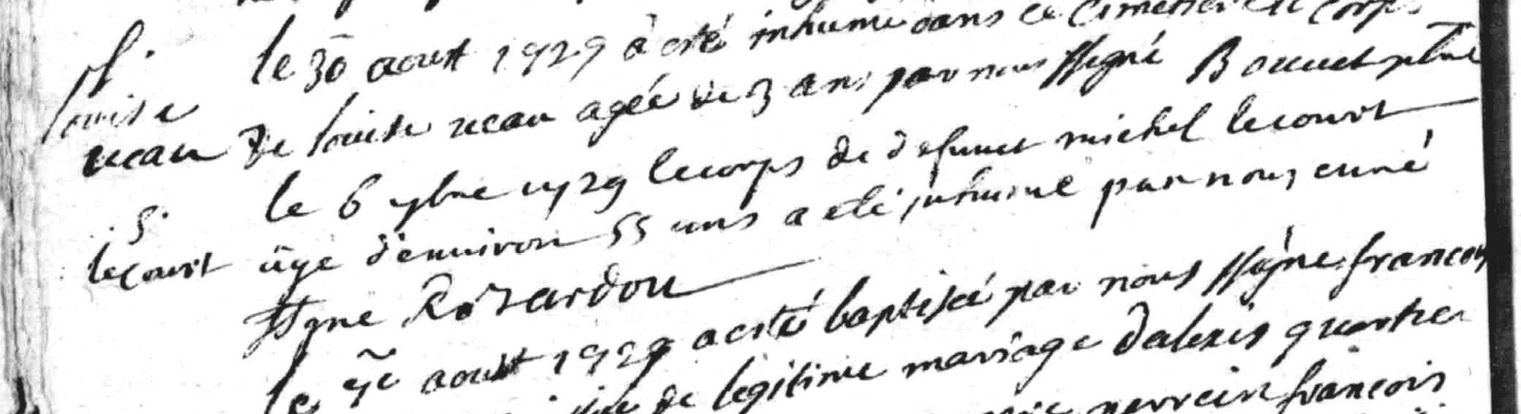 S.
Louise
ucau
le 30 aoust 1729 a esté inhumé dans ce cimetiere le corps
de louise ucau agée de 3 ans par nous ssigné
le 6 7bre 1729 le corps de defunct michel lecourt
S.
lecourt
âge d'enuiron 55 ans a eté inhumé par nous curé
ssigne
le aoust 1729 a esté baptisé par nous ssigne francois
de legitime mariage dalexis quartier
francois